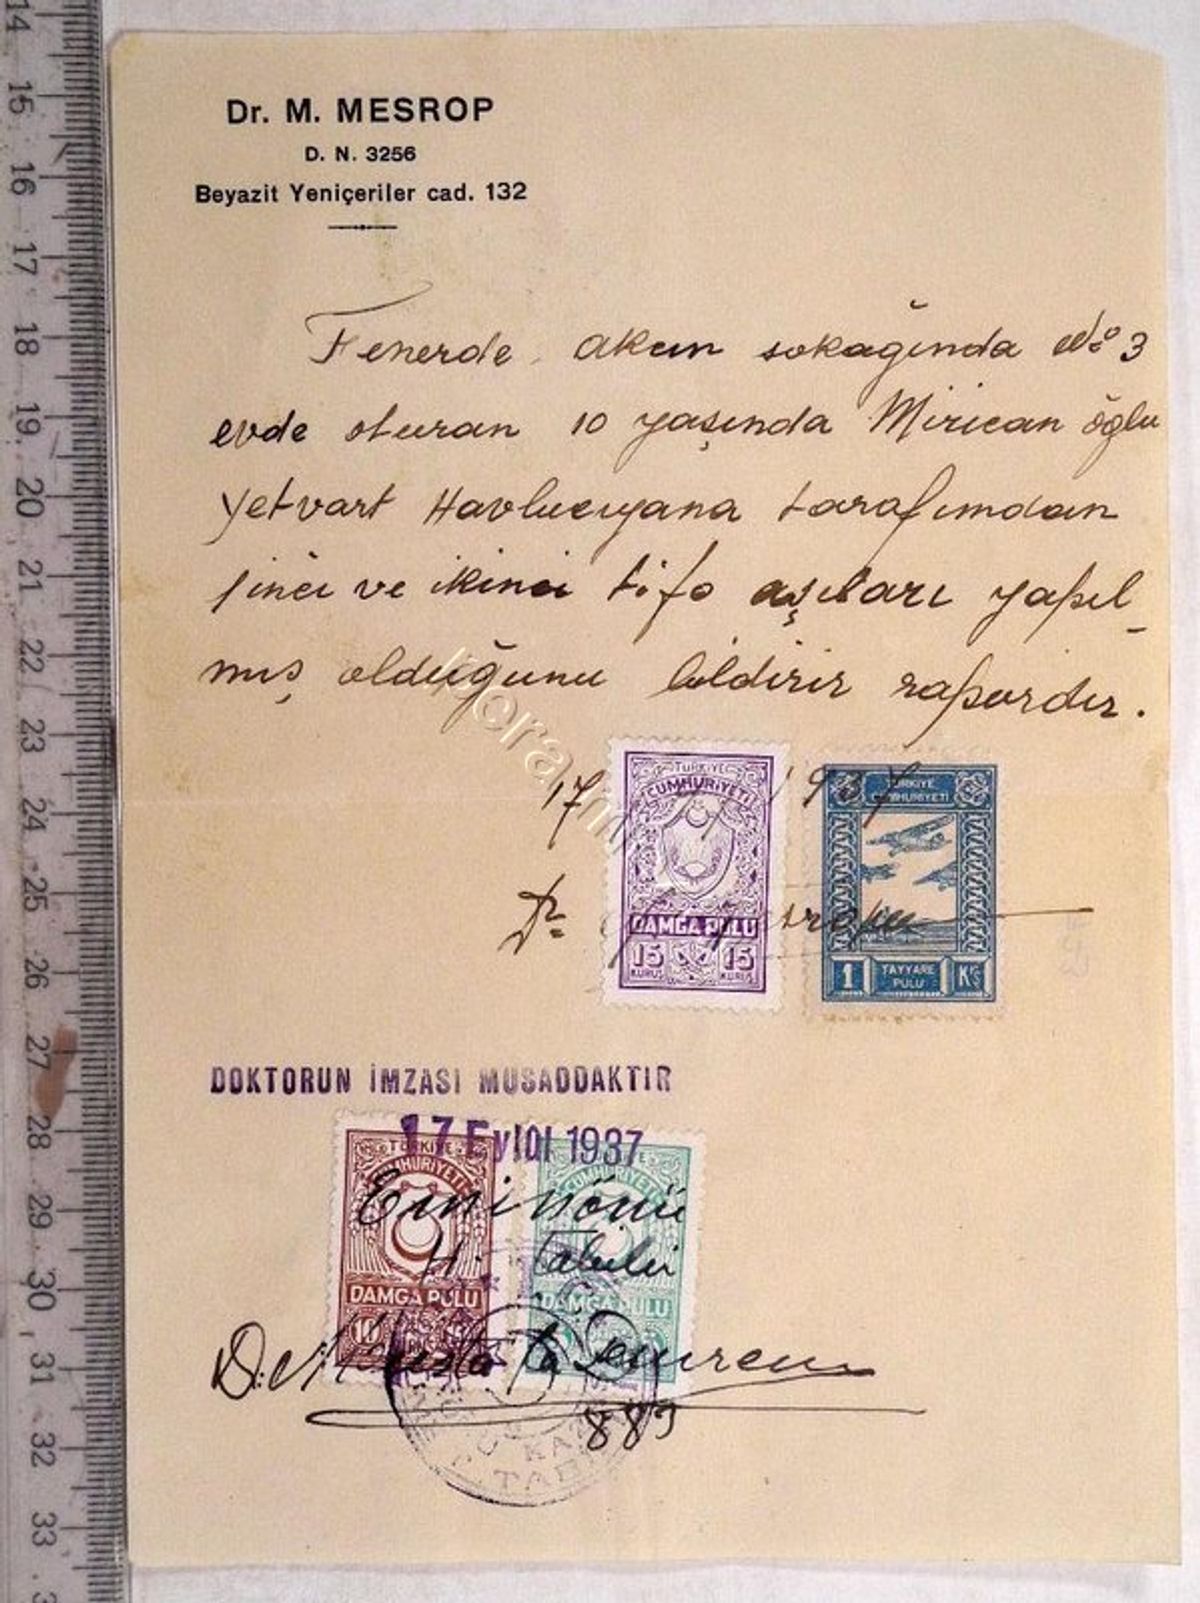 Dr. M. MESROP
D. N. 3256
Beyazit Yeniçeriler cad. 132
Fenerde akın sokağında No 3
evde oturan 10 yaşında Mirican oğlu
Yetvart Havlucıyana tarafımdan
1inci ve ikinci tifo aşıları yapıl-
mış olduğunu bildirir rapordır.
17 1937
Dr
TÜRKİYE
CUMHURİYETİ
DAMGA PULU
15 15
KURUŞ KURUŞ
TÜRKİYE
CUMHURİYETİ
1 TAYYARE PULU Krş
DOKTORUN İMZASI MUSADDAKTIR
17 Eylûl 1937
TÜRKİYE
CUMHURİYETİ
CUMHURİYETİ
Eminönü
H. Tabibi
DAMGA PULU
DAMGA PULU
10
Dr. Mustafa
889
14 15 16 17 18 19 20 21 22 23 24 25 26 27 28 29 30 31 32 33